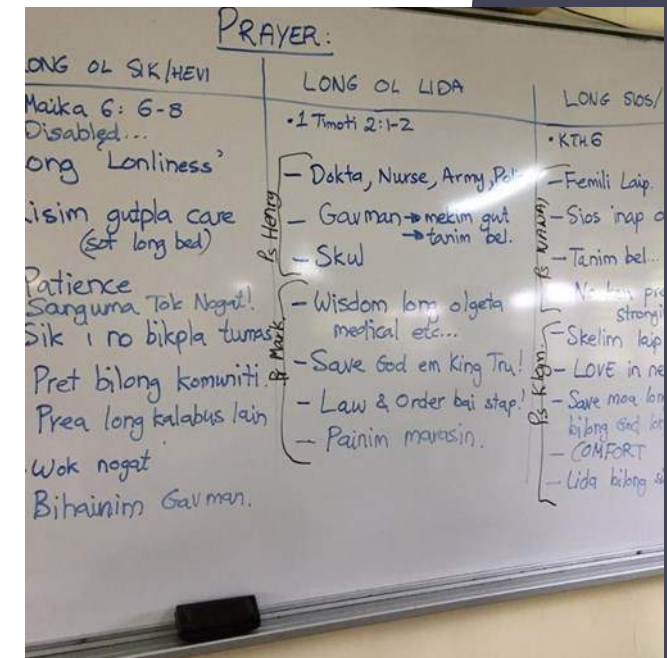 PRAYER:
LONG OL SIK/HEVI
Maika 6: 6-8
Disabled...
ong Lonliness'
isim gutpla care
(sot long bed)
Patience
Sanguma Tok Nogat!
Sik i no bikpla tumas
Pret bilong komuniti.
Prea long kalabus lain
Wok nogat
Bihainim Gavman.
LONG OL LIDA
• 1 Timoti 2:1-2
Ps Henry
- Dokta, Nurse, Army, Pol
- Gavman → mekim gut
→ tanim bel.
- Skul
Ps Mark
- Wisdom long olgeta
medical etc...
- Save God em King Tru!
- Law & Order bai stap!
- Painim marasin.
LONG SIOS/
• KTH 6
Ps
- Femili Laip.
- Sios inap
- Tanim bel...
- No ken pre
strongi
Ps
- Skelim laip
- LOVE in ne
- Save moa lon
bilong God lon
- COMFORT
- Lida bilong s